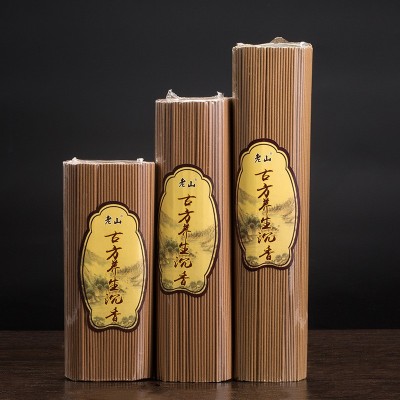 老山
古方养生沉香
老山
古方养生沉香
老山
古方养生沉香